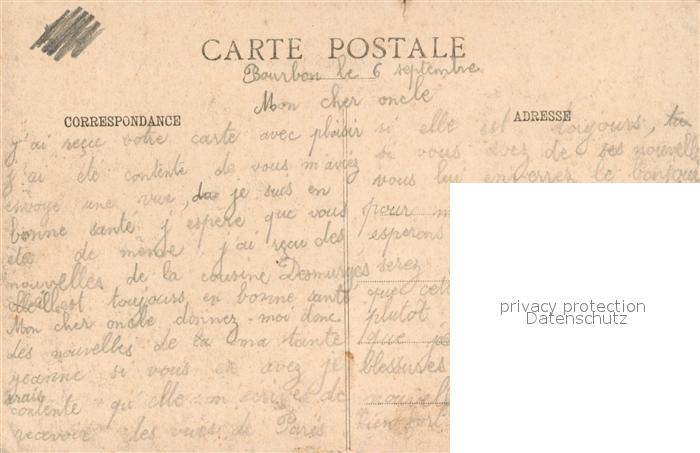 CARTE POSTALE
Bourbon le 6 septembre
Mon cher oncle
CORRESPONDANCE
ADRESSE
j'ai reçu votre carte avec plaisir
j'ai été contente de vous m'aviez
envoyé une vue, je suis en
bonne santé j'espère que vous
êtes de même j'ai reçu des
nouvelles de la cousine Desmurgés
est toujours en bonne santé
Mon cher oncle donnez-moi donc
des nouvelles de ma tante
jeanne si vous en avez je
serais
contente qu'elle m'écrive de
recevoir les vues de Paris
si elle est toujours,
si vous avez de ses nouvelles
vous lui enverrez le bonjour
pour
esperons
serez
que
plutot
que
blessures
nouvell
bien fort
privacy protection
Datenschutz